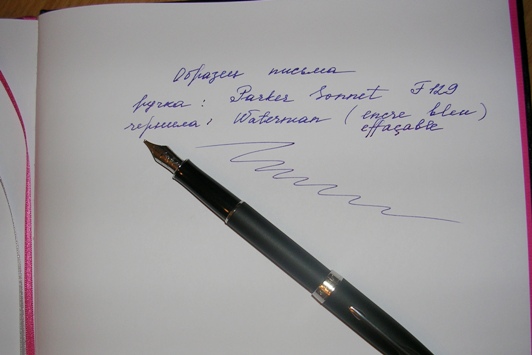 Образец письма
ручка: Parker Sonnet F129
чернила: Waterman (encre bleu
effaçable)